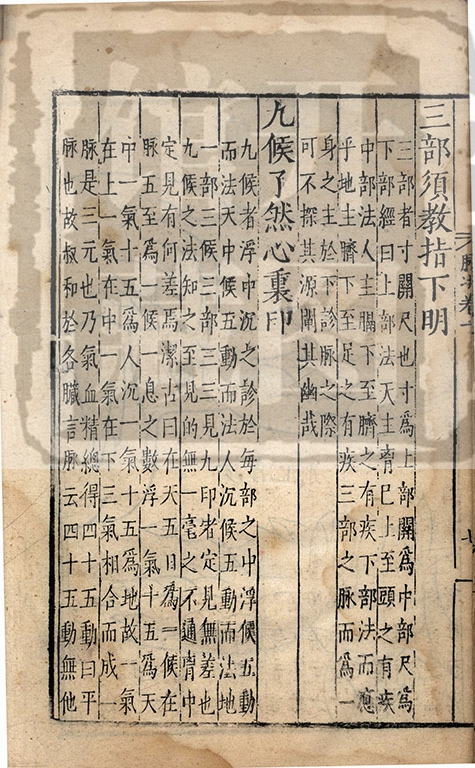 卷一
七
三部須教指下明
三部者寸關尺也寸爲上部關爲中部尺爲
下部經曰上部法天主胷巳上至頭之有疾
中部法人主膈下至臍之有疾下部法而應
乎地主臍下至足之有疾三部之脉而爲一
身之主於下診脉之際
可不探其源闡其幽哉
九候了然心裏印
九候者浮中沉之診於每部之中浮候五動
而法天中候五動而法人沉候五動而法地
一部三候三部三三見九印者定見無差也
九候之法知之至見的無一毫之不通胷中
定見有何差焉潔古曰在天五日爲一候在
脉五至爲一候一息之數浮一氣十五爲天
中一氣十五爲人沉一氣十五爲地故一氣
在上一氣在中一氣在下三氣相合而成一
脉是三元也乃氣血精總得四十五動曰平
脉也故叔和於各臟言脉云四十五動無他